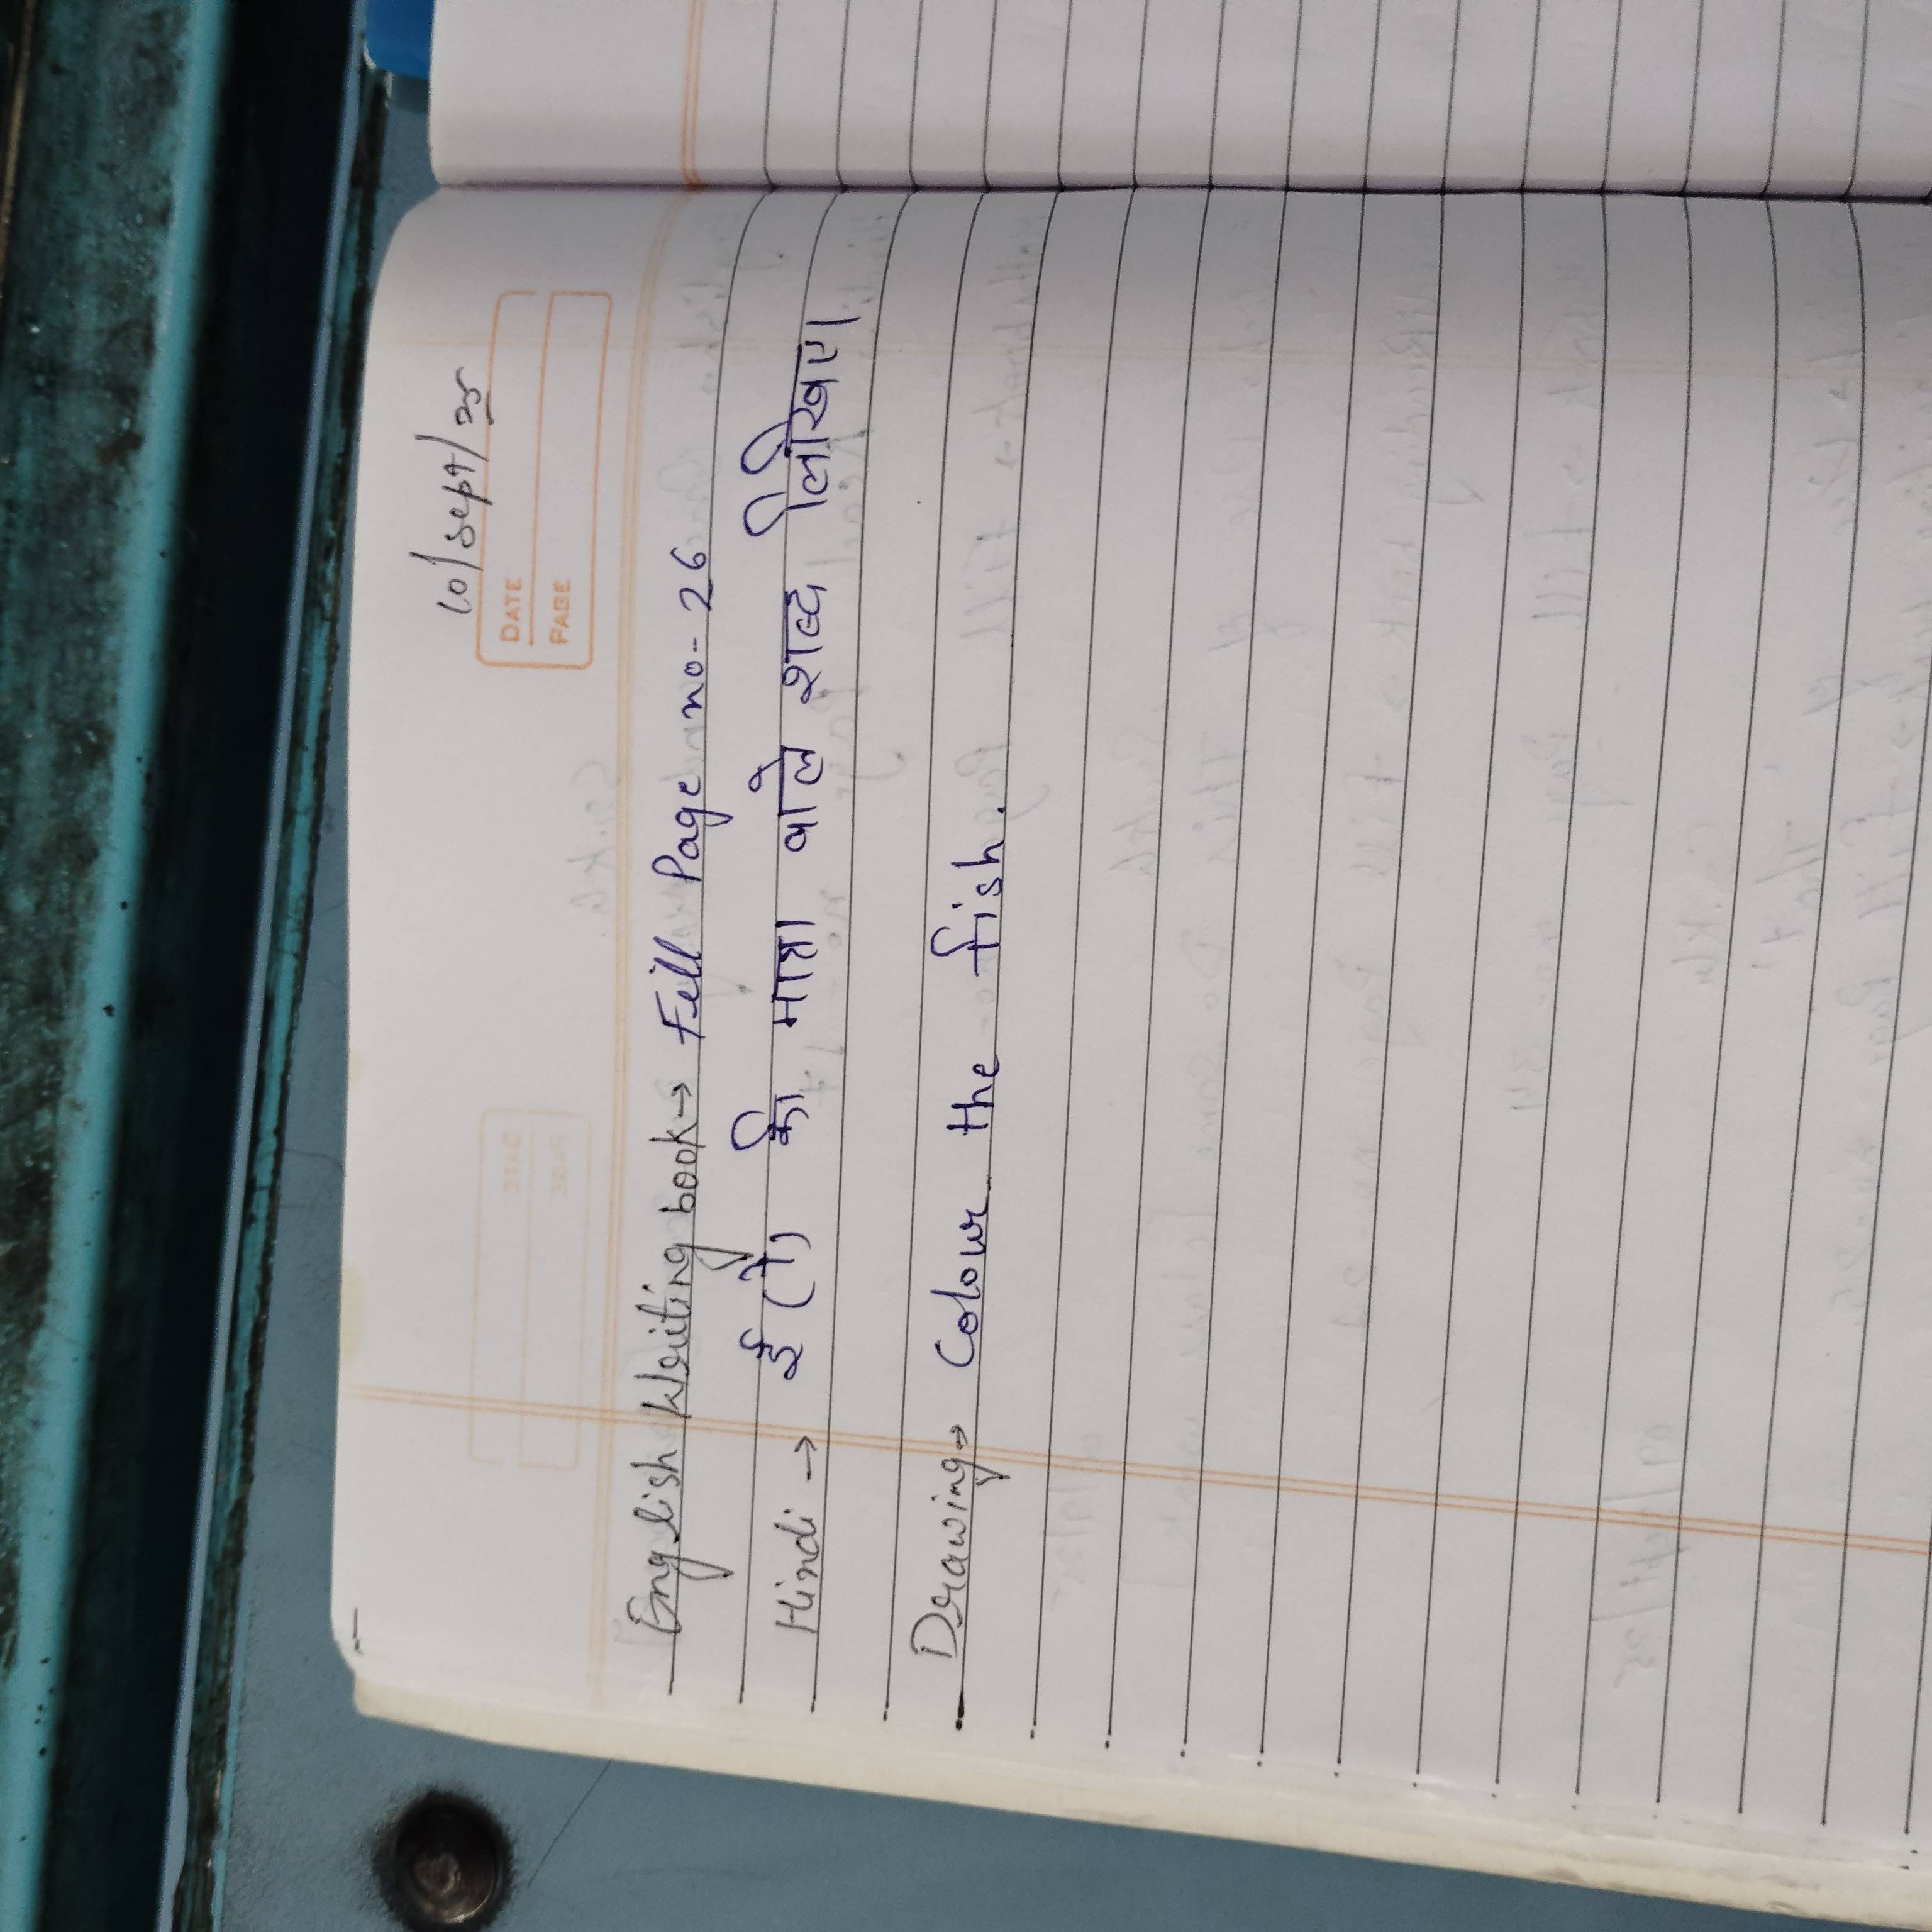 10/Sept/25
DATE
PAGE
English Writing book → Fill Page no- 26
Hindi → ई (ी) की मात्रा वाले शब्द लिखिए।
Drawing → Colour the fish.